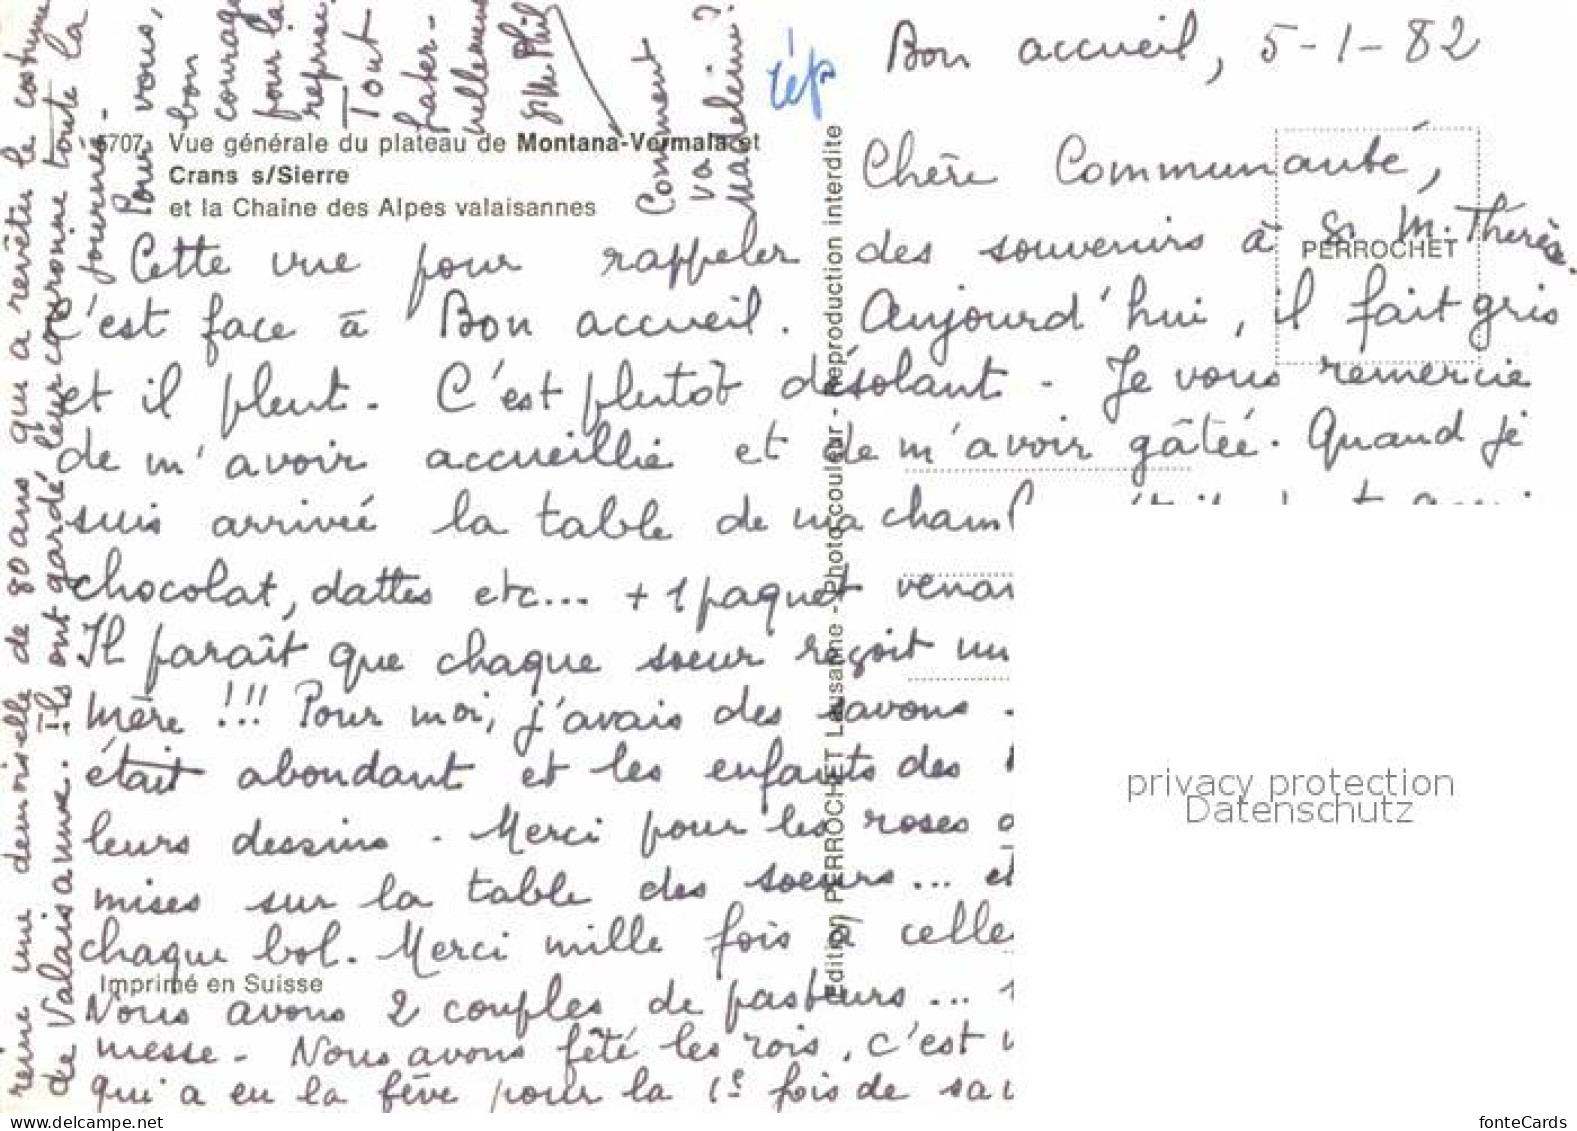 Bon accueil, 5-1-82
rép
Chère Communauté,
Cette vue pour rappeler des souvenirs à Sr M. Thérèse.
C'est face à Bon accueil. Aujourd'hui, il fait gris
et il pleut. C'est plutôt désolant. Je vous remercie
de m'avoir accueillie et de m'avoir gâtée. Quand je
suis arrivée la table de ma
chocolat, dattes etc... + 1 paquet
Il paraît que chaque soeur reçoit
mère !!! Pour moi, j'avais des savons.
était abondant et les enfants des
leurs dessins. Merci pour les roses
mises sur la table des soeurs...
chaque bol. Merci mille fois à
Nous avons 2 couples de pasteurs...
messe. Nous avons fêté les rois, c'est
qui a eu la fève pour la 1e fois de sa
reine une demoiselle de 80 ans qui a revêtu le costume
de Valaisanne. Ils ont gardé leur couronne toute la
journée.
Pour vous,
bon
courage
pour la
reprise.
Tout
frater-
nellement
Sr M. Phil
Comment
va
Madeleine ?
5707 Vue générale du plateau de Montana-Vermala et
Crans s/Sierre
et la Chaîne des Alpes valaisannes
PERROCHET
Edition PERROCHET Lausanne - Photo couleur - Reproduction interdite
Imprimé en Suisse
privacy protection
Datenschutz
www.delcampe.net
fonteCards